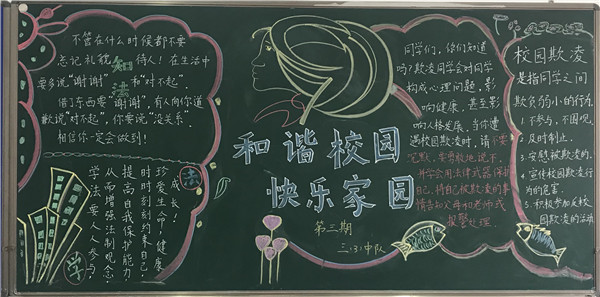 不管在什么时候都不要
忘记礼貌待人！在生活中
要多说“谢谢”和“对不起”。
借了东西要“谢谢”，有人向你道
歉说“对不起”，你要说“没关系”。
相信你一定会做到！
知
法
学法要人人参与！
从而增强法制观念，
提高自我保护能力，
时时刻刻约束自己，
珍爱生命！健康
成长！
学
法
和谐校园
快乐家园
第三期
三（3）中队
同学们，你们知道
吗？欺凌同学会对同学
构成心理问题，影
响健康，甚至影
响人格发展，当你遭
遇校园欺凌时，请不要
沉默，要勇敢地说不，
并学会用法律武器保护
自己，将自己被欺凌的事
情告知父母和老师或
报警处理。
校园欺凌
是指同学之间
欺负弱小的行为
1.不参与，不围观。
2.及时制止。
3.安慰被欺凌的。
4.宣传校园欺凌行
为的危害。
5.积极参加反校
园欺凌的活动